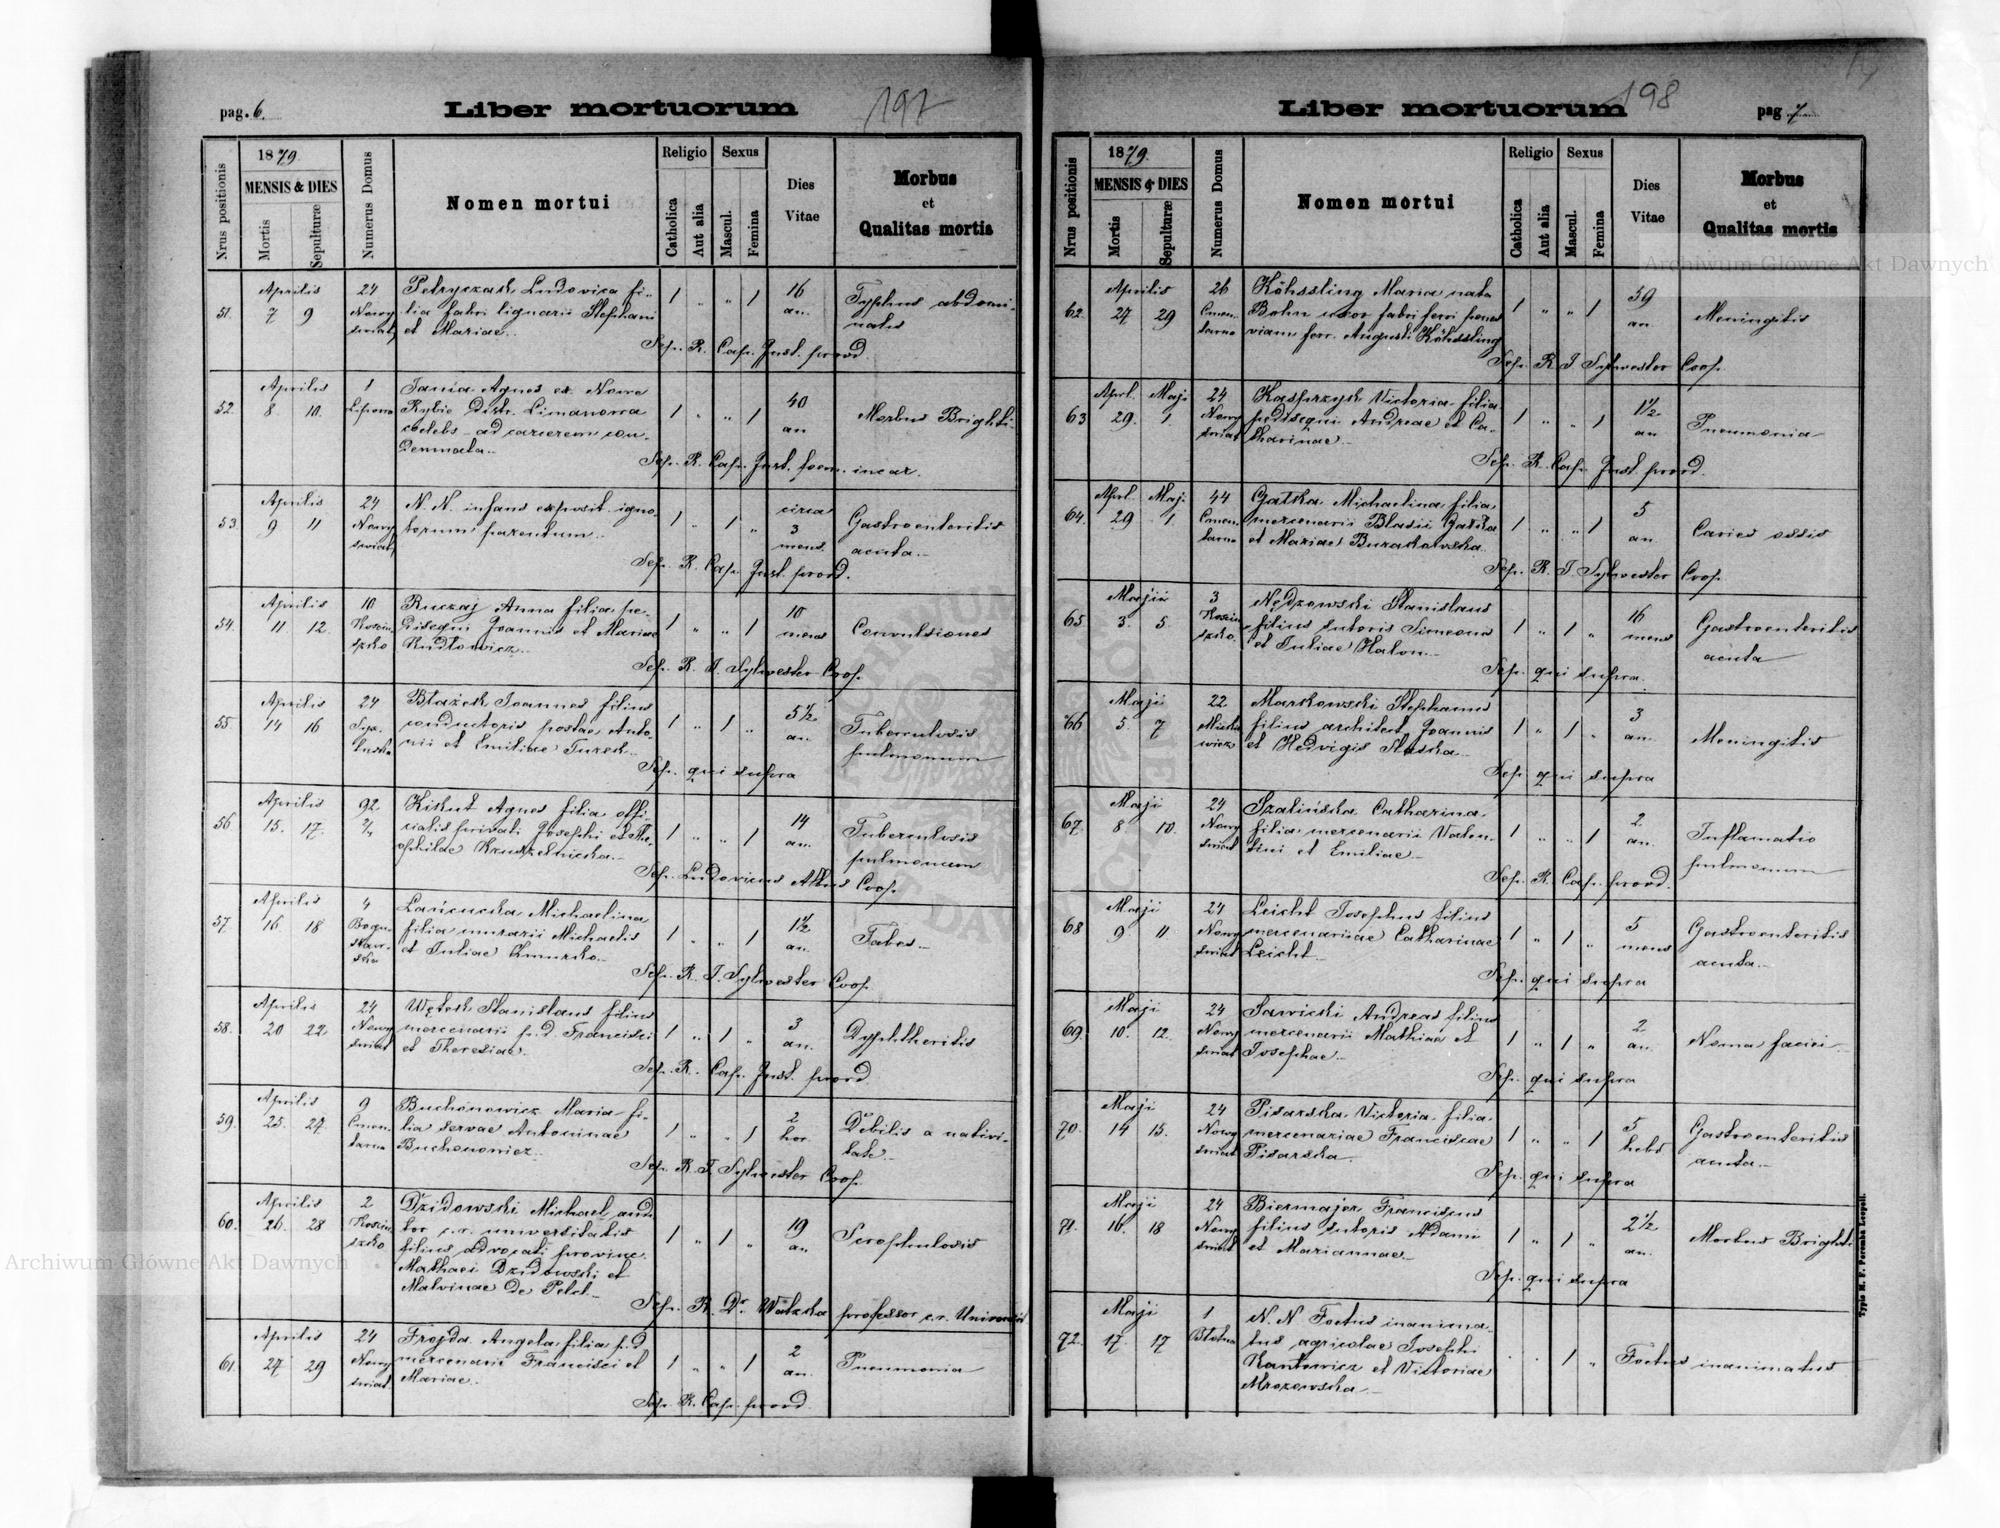 pag. 6.
Liber mortuorum
197
Nrus positionis
1879.
MENSIS & DIES
Mortis
Sepulturæ
Numerus Domus
Nomen mortui
Religio
Catholica
Aut alia
Sexus
Mascul.
Femina
Dies
Vitae
Morbus
et
Qualitas mortis
51. Aprilis 7 9
24 Nowy świat
Petryczak Ludovica fi-
lia fabri lignarii Stephani
et Mariae.
1 " " 1 16 an.
Typhus abdomi-
nalis
Sep. R. Cap. Inst. provid.
52. Aprilis 8. 10.
1 Lipowa
Tania Agnes ex Nowe
Rybie Distr. Limanowa
coelebs ad carcerem con-
demnata.
1 " " 1 40 an
Morbus Brighti
Sep. R. Cap. Inst. foem. incar.
53. Aprilis 9 11
24 Nowy świat
N. N. infans exposit. igno-
torum parentum.
1 " 1 " circa 3 mens.
Gastroenteritis
acuta.
Sep. R. Cap. Inst. provid.
54. Aprilis 11 12.
10 Kosciu szko
Ruczaj Anna filia pe-
disequi Joannis et Mariae
Kudłowicz.
1 " " 1 10 mens
Convulsiones
Sep. R. T. Sylwester Coop.
55. Aprilis 14 16
24
Błażek Joannes filius
conductoris postae Anto-
nii et Emiliae Turek.
1 " 1 " 5½ an.
Tuberculosis
pulmonum
Sep. qui supra
56 Aprilis 15. 17.
92 2/4
Kikut Agnes filia offi-
cialis privati Josephi et The-
ophilae Kruszelnicka.
1 " " 1 14 an.
Tuberculosis
pulmonum
Sep. Ludovicus Albus Coop.
57. Aprilis 16. 18
4 Bogu- sław- ska
Lańcucka Michaelina
filia murarii Michaelis
et Juliae Chmurzko.
1 " " 1 1½ an.
Tabes
Sep. R. T. Sylwester Coop.
58. Aprilis 20 22
24 Nowy świat
Wętek Stanislaus filius
mercenarii p. d. Francisci
et Theresiae.
1 " 1 " 3 an.
Dyphtheritis
Sep. R. Cap. Inst. provd.
59. Aprilis 23. 24.
9 Cmen- tarna
Buchonowicz Maria fi-
lia servae Antoninae
Buchonowicz.
1 " " 1 2 hor.
Debilis a nativi-
tate.
Sep. R. T. Sylwester Coop.
60. Aprilis 26. 28
2 Kosciu szko
Dzidowski Michael audi
tor c. r. universitatis
filius advocati provinc.
Mathaei Dzidowski et
Malvinae de Pelet.
1 " 1 " 19 an
Scrophulosis
Sep. R. Dr. Watzka professor c. r. Universit
61. Aprilis 27 29
24 Nowy świat
Frojda Angela filia p. d
mercenarii Francisci et
Mariae.
1 " " 1 2 an.
Pneumonia
Sep. R. Cap. provd.
198
Liber mortuorum
pag 7
Nrus positionis
1879.
MENSIS & DIES
Mortis
Sepulturæ
Numerus Domus
Nomen mortui
Religio
Catholica
Aut alia
Sexus
Mascul.
Femina
Dies
Vitae
Morbus
et
Qualitas mortis
62. Aprilis 27 29
26 Cmen- tarna
Köhssling Maria nata
Bohn uxor fabri ferri penes
viam ferr. Augusti Köhssling
1 " " 1 59 an.
Meningitis
Sep. R T Sylwester Coop.
63 Aprl. 29. Maji 1.
24 Nowy świat
Kasprzyk Victoria filia
pedisequi Andreae et Ca-
tharinae.
1 " " 1 1½ an
Pneumonia
Sep. R. Cap. Inst. provd.
64. Aprl. 29 Maji 1
44 Cmen- tarna
Gałka Michaelina filia
mercenarii Blasii Gałka
et Mariae Burakowska.
1 " " 1 5 an.
Caries ossis
Sep. R. T. Sylwester Coop.
65. Maji 3. 5.
3 Kosciu- szko
Nędzowski Stanislaus
filius sutoris Simeonis
et Juliae Halon.
1 " 1 " 16 mens
Gastroenteritis
acuta
Sep. qui supra.
66 Maji 5. 7
22 Mickie wicza
Markowski Stephanus
filius architect Joannis
et Hedvigis Słaska
1 " 1 " 3 an.
Meningitis
Sep. qui supra
67. Maji 8. 10.
24 Nowy świat
Szalińska Catharina
filia mercenarii Valen-
tini et Emiliae
1 " " 1 2 an.
Inflamatio
pulmonum
Sep. R. Cap. provd.
68 Maji 9 11
24 Nowy świat
Leicht Josephus filius
mercenariae Catharinae
Leicht.
1 " 1 " 5 mens
Gastroenteritis
acuta.
Sep. qui supra
69. Maji 10. 12.
24 Nowy świat
Sawicki Andreas filius
mercenarii Mathiae et
Josephae.
1 " 1 " 2 an.
Noma faciei
Sep. qui supra
70. Maji 14 15.
24 Nowy świat
Pisarska Victoria filia
mercenariae Franciscae
Pisarska
1 " " 1 5 hebd
Gastroenteritis
acuta.
Sep. qui supra
71. Maji 16. 18
24 Nowy świat
Biermajer Franciscus
filius sutoris Adami
et Mariannae.
1 " 1 " 2½ an.
Morbus Brighti
Sep. qui supra
72. Maji 17. 17
1 Błotna
N. N Foetus inanima-
tus agricolae Josephi
Kantowicz et Victoriae
Mrozowska.
1 "
Foetus inanimatus
Typis M. F. Poremba Leopoli.
Archiwum Główne Akt Dawnych
Archiwum Główne Akt Dawnych